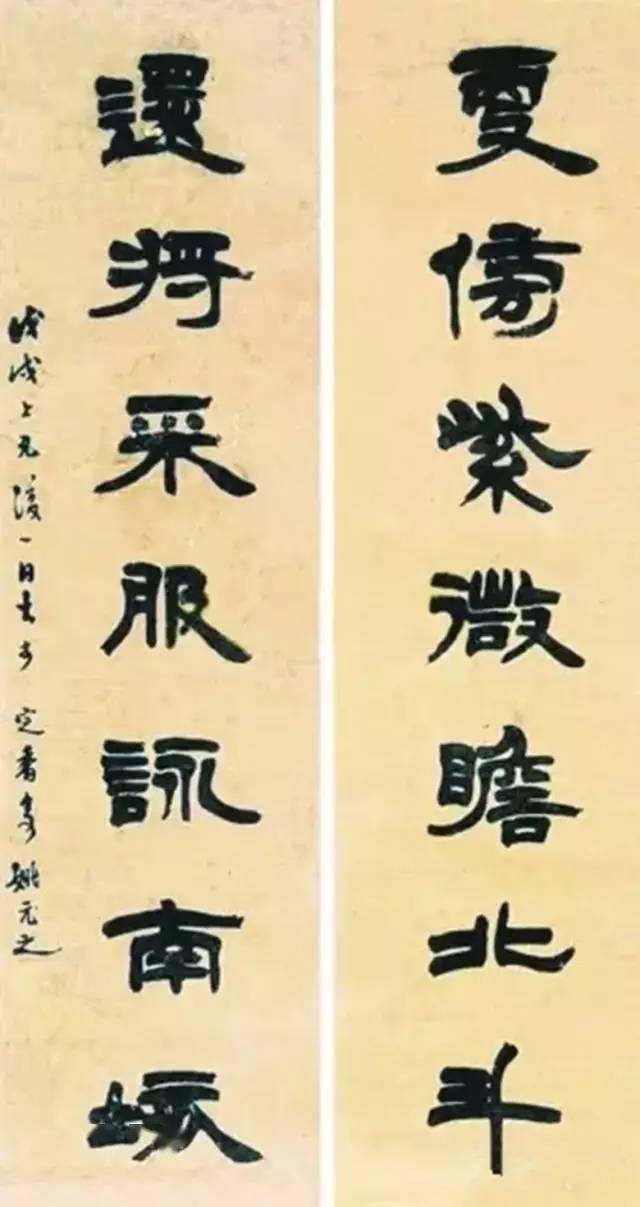 更傍紫微瞻北斗
還將采服詠南陔
戊戌上元後一日書于定香 姚元之